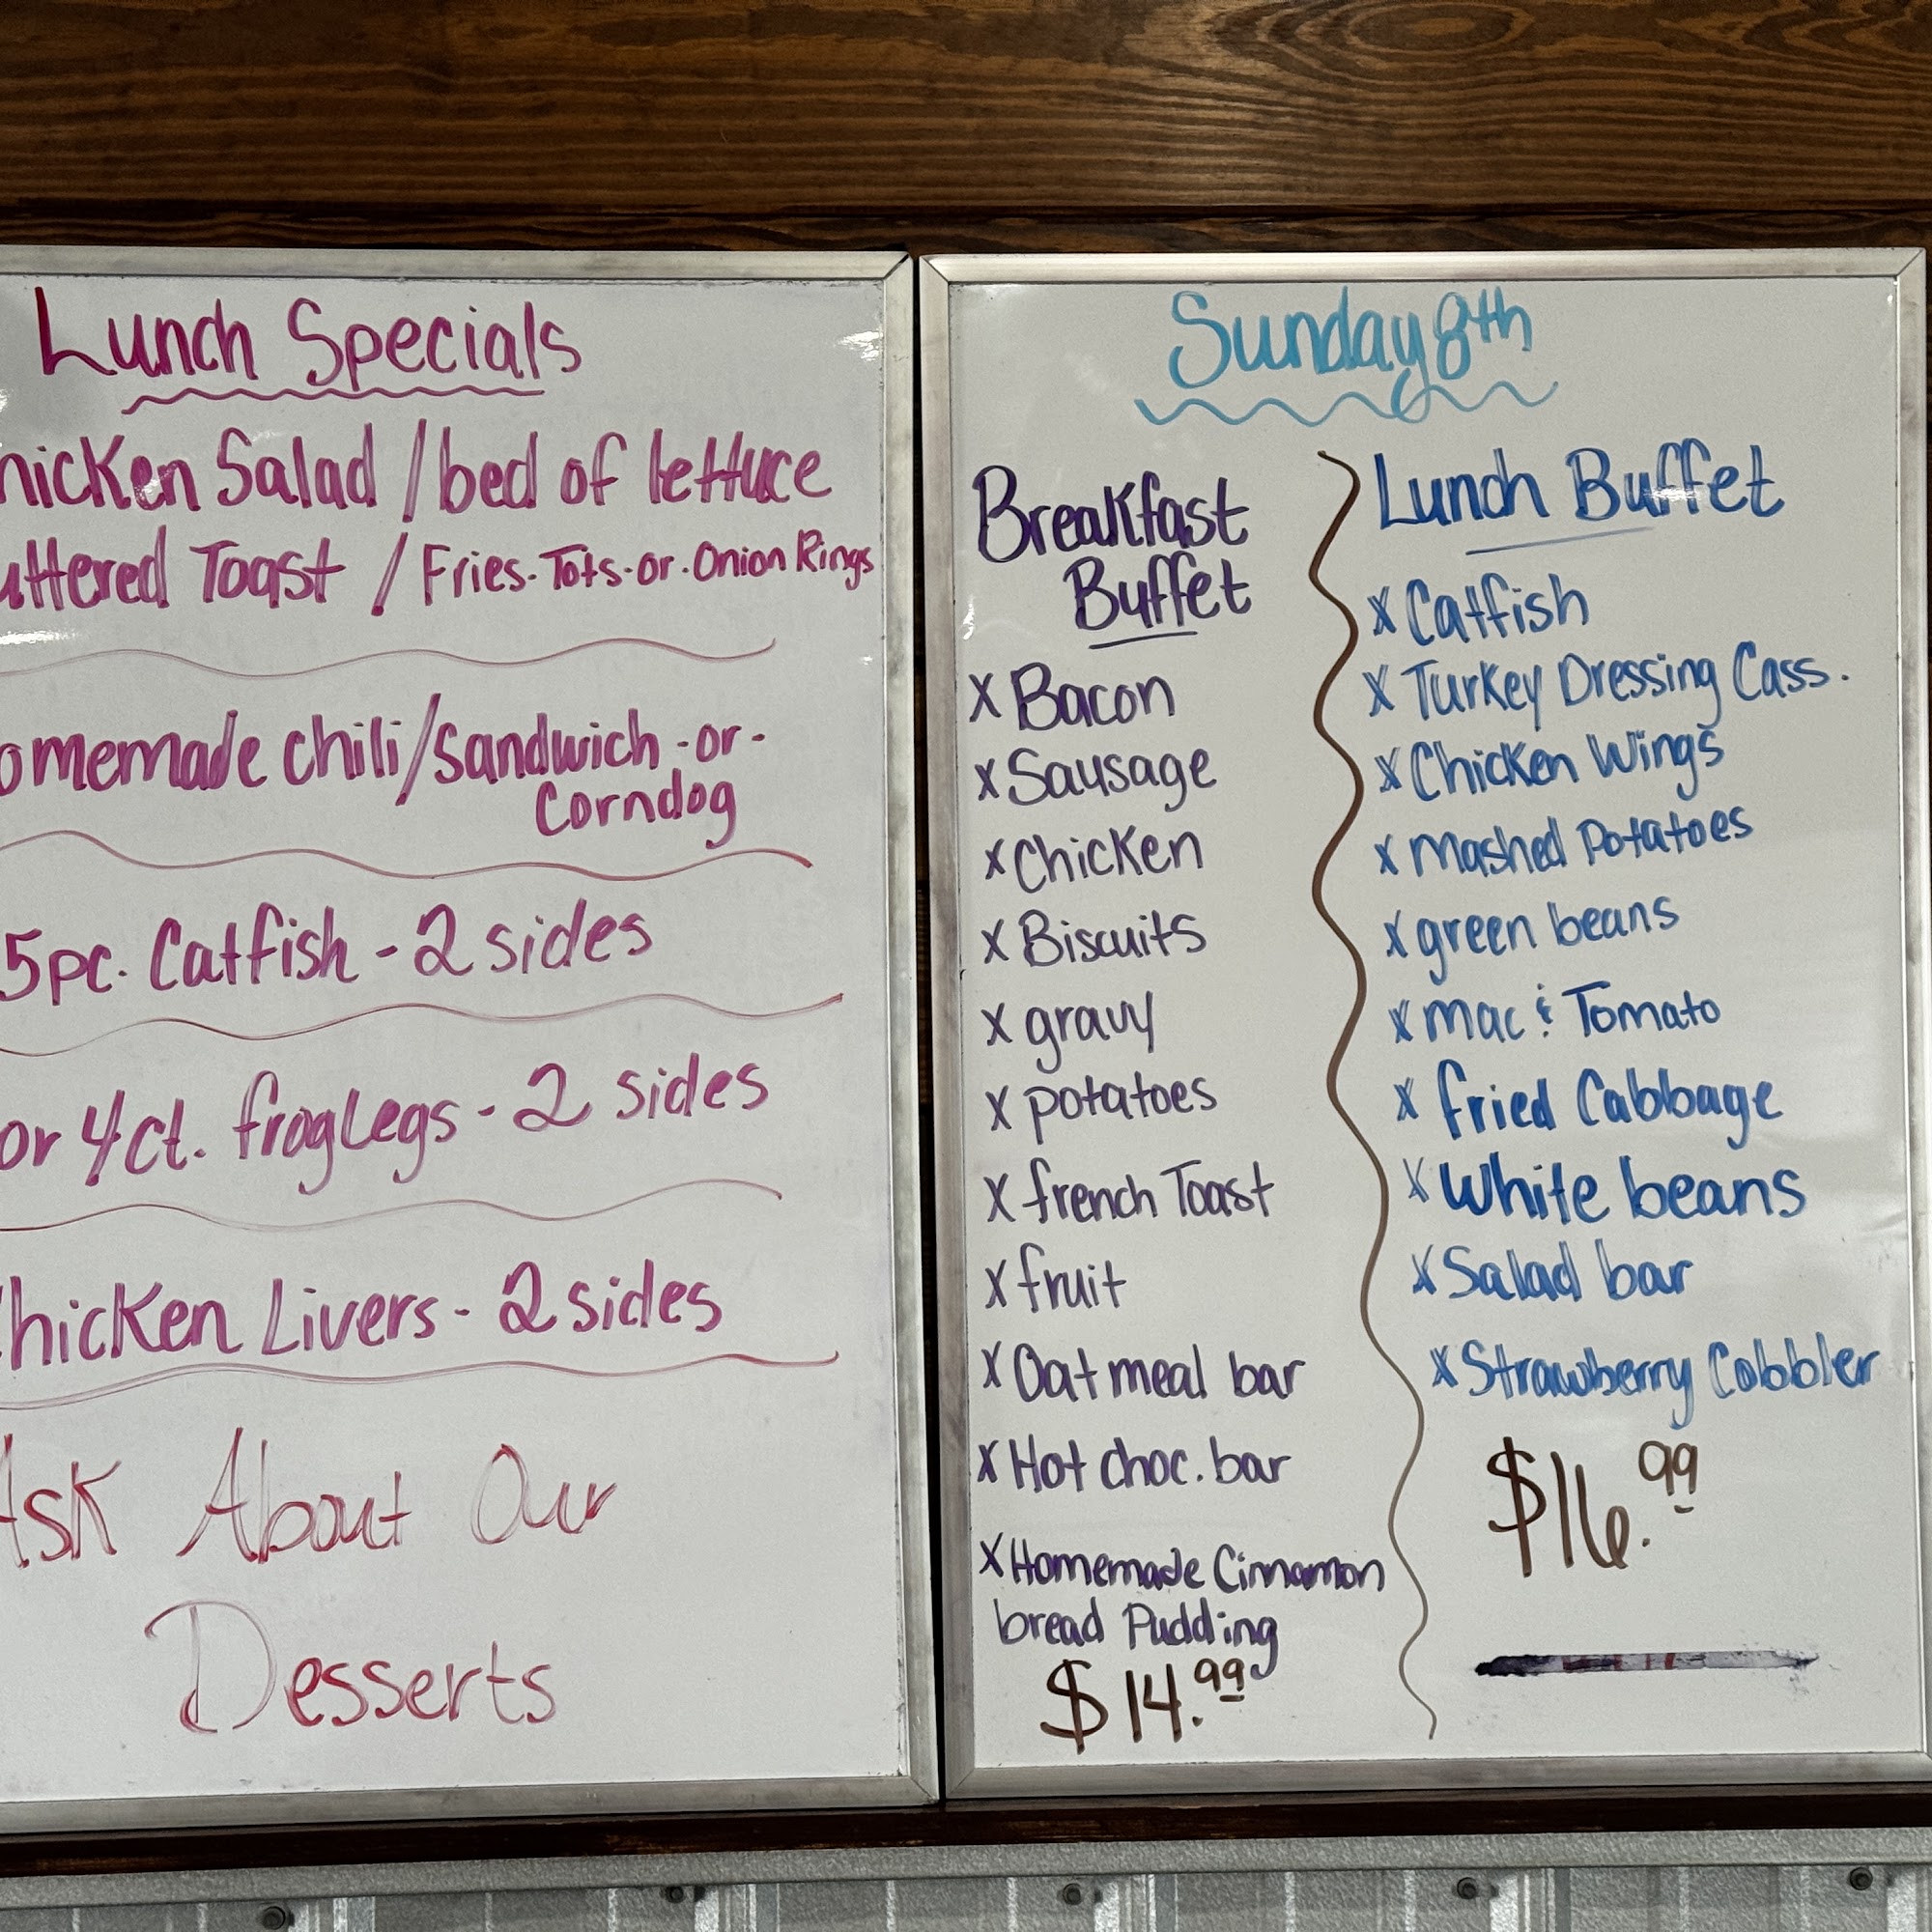 Lunch Specials
hicken Salad / bed of lettuce
uttered Toast / Fries-Tots-or-Onion Rings
omemade chili/sandwich -or-
Corndog
5pc. Catfish - 2 sides
or 4ct. frog Legs - 2 sides
hicken Livers - 2 sides
Ask About Our
Desserts
Sunday 8th
Breakfast
Buffet
x Bacon
x Sausage
x Chicken
x Biscuits
x gravy
x potatoes
x french Toast
x fruit
x Oatmeal bar
x Hot choc. bar
x Homemade Cinnamon
bread Pudding
$14.99
Lunch Buffet
x Catfish
x Turkey Dressing Cass.
x Chicken Wings
x mashed Potatoes
x green beans
x mac & Tomato
x fried Cabbage
x White beans
x Salad bar
x Strawberry Cobbler
$16.99